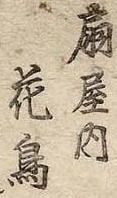 扇屋内
花鳥